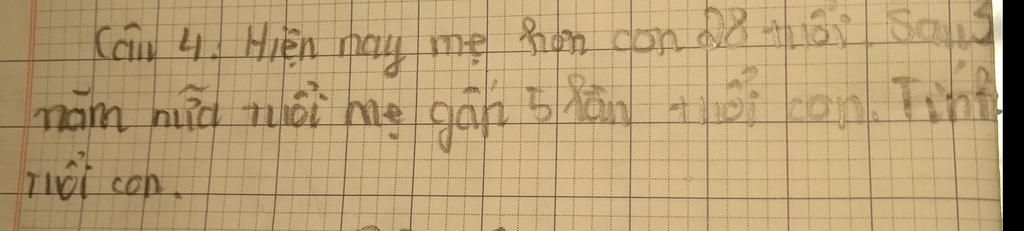 Câu 4. Hiện nay mẹ hơn con 28 tuổi. Sau 3
năm nữa tuổi mẹ gấp 5 lần tuổi con. Tính
tuổi con.